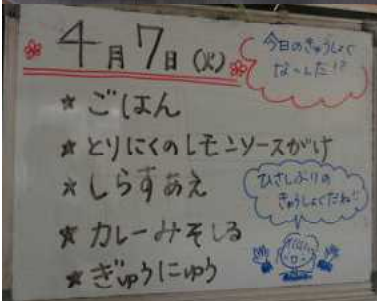 4月7日(火)
今日のきゅうしょく
な～んだ!?
★ごはん
★とりにくのレモンソースがけ
★しらすあえ
★カレーみそしる
★ぎゅうにゅう
ひさしぶりの
きゅうしょくだね!!